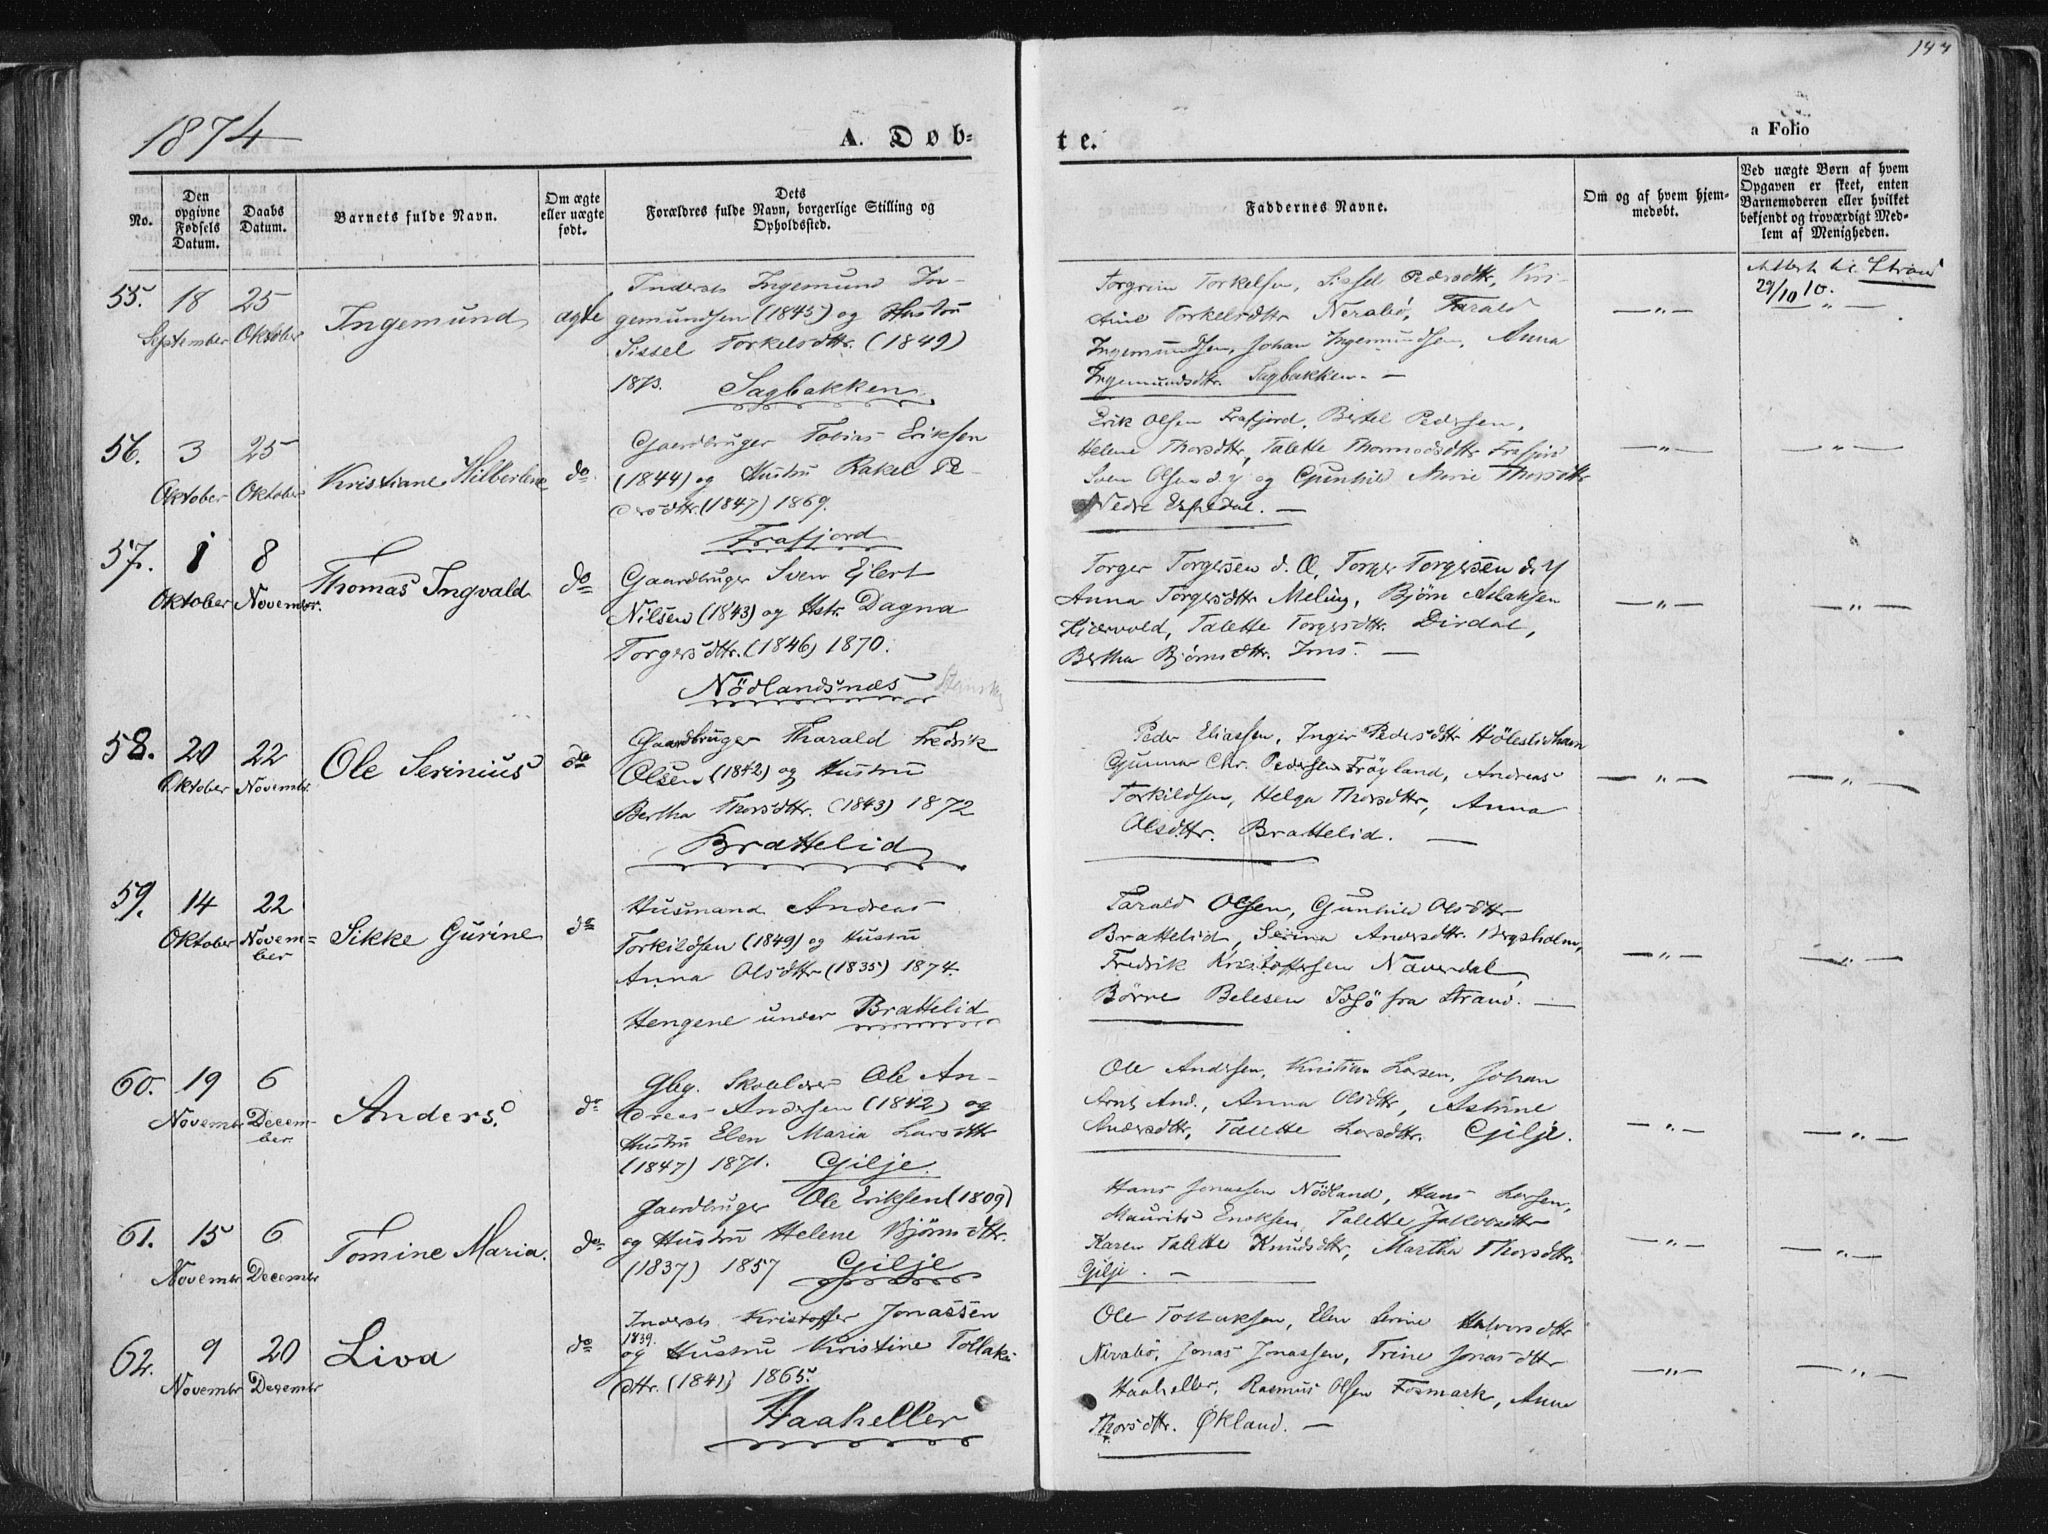 144
1874
A. Døb=
te.
a Folio
No.
Den opgivne Fødsels Datum.
Daabs Datum.
Barnets fulde Navn.
Om ægte eller uægte født.
Dets Forældres fulde Navn, borgerlige Stilling og Opholdssted.
Faddernes Navne.
Om og af hvem hjemmedøbt.
Ved uægte Børn af hvem Opgaven er skeet, enten Barnemoderen eller hvilket bekjendt og troværdigt Medlem af Menigheden.
55. 18 September
25 Oktober
Ingemund
ægte
Inderst Ingemund In-
gemundsen (1845) og Hustru
Sissel Torkelsdttr. (1849)
1873. Sagbakken
Torgrim Torkelsen, Sissel Pedersdttr, Kri-
stine Torkelsdttr Nerabø, Tarald
Ingemundsen, Johan Ingemundsen, Anna
Ingemundsdttr. Sagbakken. —
— " —
Attest til Strand
29/10 10.
" —
56. 3 Oktober
25 Oktober
Kristiane Hilberlene
do.
Gaardbruger Tobias Eriksen
(1844) og Hustru Rakel Pe-
dersdttr. (1847) 1869.
Frafjord
Erik Olsen Frafjord, Bertel Pedersen,
Helene Thorsdttr, Talette Thormodsdttr Frafjord
Sven Olsen d. y og Gunhild Marie Thorsdttr
Nedre Espedal. —
— " —
— " —
57. 1 Oktober
8 Novembr.
Thomas Ingvald
do
Gaardbruger Sven Ejlert
Nilsen (1843) og Hstr. Dagna
Torgersdttr. (1846) 1870.
Nödlandsnæs
Torger Torgersen d. Æ, Torger Torgersen d. Y
Anna Torgersdttr Meling, Bjørn Aslaksen
Kidervold, Talette Torgersdttr. Dirdal,
Bertha Bjørnsdttr. Ims. —
— " —
— " —
58. 20 Oktober
22 Novembr.
Ole Serinius
do
Gaardbruger Tharald Fredrik
Olsen (1842) og Hustru
Bertha Thorsdttr. (1843) 1872
Brattelid
Peder Eliassen, Inger Pedersdttr Höleslidhavn
Gunnar Chr. Pedersen Frøyland, Andreas
Torkildsen, Helga Thorsdttr, Anna
Olsdttr. Brattelid. —
— " —
— " —
59. 14 Oktober
22 Novem=
ber
Sikke Gurine
do
Husmand Andreas
Torkildsen (1849) og Hustru
Anna Olsdttr (1835) 1874.
Hengene under Brattelid
Tarald Olsen, Gunhild Olsdttr
Brattelid, Serina Andersdttr. Bergsholm,
Fredrik Kristoffersen Næverdal,
Børre Belesen Idsö fra Strand. —
— " —
— " —
60. 19 Novembr
6 Decem-
ber.
Anders.
do
Gbg. Skoelærer Ole An-
dreas Andersen (1842) og
Hustru Elen Maria Larsdttr
(1847) 1871. Gilje.
Ole Andersen, Kristian Larsen, Johan
Arnt And., Anna Olsdttr, Astrine
Andersdttr, Talette Larsdttr. Gilje.
— " —
— " —
61. 15 Novembr
6 Decembr
Tomine Maria.
do
Gaardbruger Ole Eriksen (1809)
og Hustru Helene Bjørnsdttr.
(1837) 1857 Gilje
Hans Jonassen Nödland, Hans Larsen,
Maurits Enoksen, Talette Jakobsdttr
Karen Talette Knudsdttr, Martha Thorsdttr.
Gilje. —
— " —
— " —
62. 9 Novembr
20 Decembr
Liva
do
Inderst Kristoffer Jonassen
1839.
og Hustru Kristine Tollaks
dttr. (1841) 1865.
Haaheller
Ole Tollaksen, Elen Serine Halvorsdttr
Nerabø, Jonas Jonassen, Trine Jonasdttr
Haaheller, Rasmus Olsen Fosmark, Anna
Thorsdttr. Økland. —
— " —
— " —